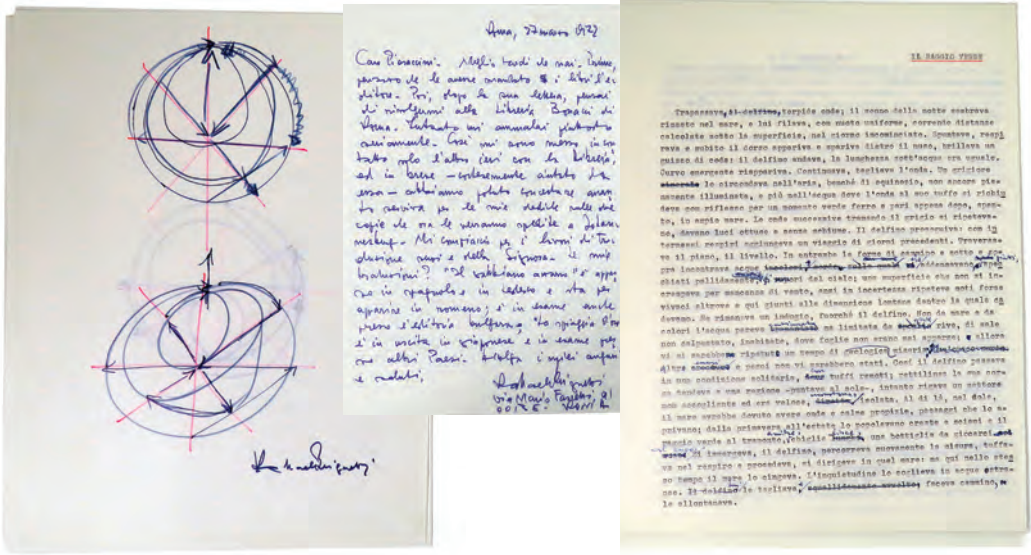 Raffaello Brignetti
Roma, 27 marzo 1972
Caro Pieraccini. Meglio tardi che mai. Prima,
pensavo che le avesse mandato i libri l'e
ditore. Poi, dopo la sua lettera, pensai
di rivolgermi alla Libreria Bonacci di
Roma. Intanto mi ammalai piuttosto
seriamente. Così mi sono messo in con
tatto solo l'altro ieri con la Libreria,
ed in breve – cortesemente aiutato da
essa – abbiamo potuto concertare quan
to serviva per le mie dediche sulle due
copie che ora le verranno spedite a Johan
nesburg. Mi compiaccio per i lavori di tra
duzione suoi e della Signora. Le mie
traduzioni? "Il gabbiano azzurro" è appar
so in spagnolo e in tedesco e sta per
apparire in romeno; è in esame anche
presso l'editoria bulgara. "La spiaggia d'oro"
è in uscita in giapponese e in esame per
altri Paesi. Accolga i migliori auguri
e saluti,
Raffaello Brignetti
via Mario
00136 - ROMA
IL RAGGIO VERDE
Trapassava, il delfino, torpide onde; il sonno della notte sembrava
rimasto nel mare, e lui filava, con moto uniforme, correnti distanze
calcolate sotto la superficie, nel giorno incominciato. Spuntava, respi
rava e subito il dorso appariva e spariva dietro il muso, brillava un
guizzo di coda: il delfino andava, la lunghezza sott'acqua era uguale.
Curvo emergente riappariva. Continuava, tagliava l'onda. Un grigiore
lo circondava nell'aria, benché di equinozio, non ancora pie
namente illuminata, e più nell'acqua dove l'onda al suo tuffo si richiu
deva con riflesso per un momento verde ferro e pari appena dopo, spen
to, in ampio mare. Le onde successive tramando il grigio si ripeteva
no, davano luci ottuse e senza schiume. Il delfino proseguiva: con in
termessi respiri aggiungeva un viaggio di giorni precedenti. Traversa
va il piano, il livello. In entrambe le forme
pre incontrava acque
chiati pallidamente, vapori dal calmo: una superficie che non si in
crespava per mancanza di vento, anzi in incertezza ripeteva moti forse
vivaci altrove e qui giunti alle dimensione lontane dentro la quale ca
devano. Ne rimaneva un indugio, fuorché il delfino. Non da mare e da
colori l'acqua pareva ma limitata da rive, di sale
non calpestato, inabitato, dove foglie non erano mai apparse; e allora
vi si sarebbe ripetuto un tempo di geologica miseria,
altre e pesci non vi sarebbero stati. Così il delfino passava
in una condizione solitaria, tuffi remoti; rettilinea la sua cor
sa tendeva a una ragione -puntava al sole-, intanto rigava un settore
non accogliente ed era veloce, isolata. Al di là, nel sole,
il mare avrebbe dovuto avere onde e calme propizie, passaggi che lo a
privano; dalla primavera all'estate lo popolavano creste e sciami e il
raggio verde al tramonto, una bottiglia da giocarci
di immergeva, il delfino, percorreva nuovamente la misura, tuffa
va nel respiro e procedeva, si dirigeva in quel mare: ma qui nello stes
so tempo il mare lo cingeva. L'inquietudine lo coglieva in acque estra
nee. le tagliava, faceva cammino,
le allontanava.